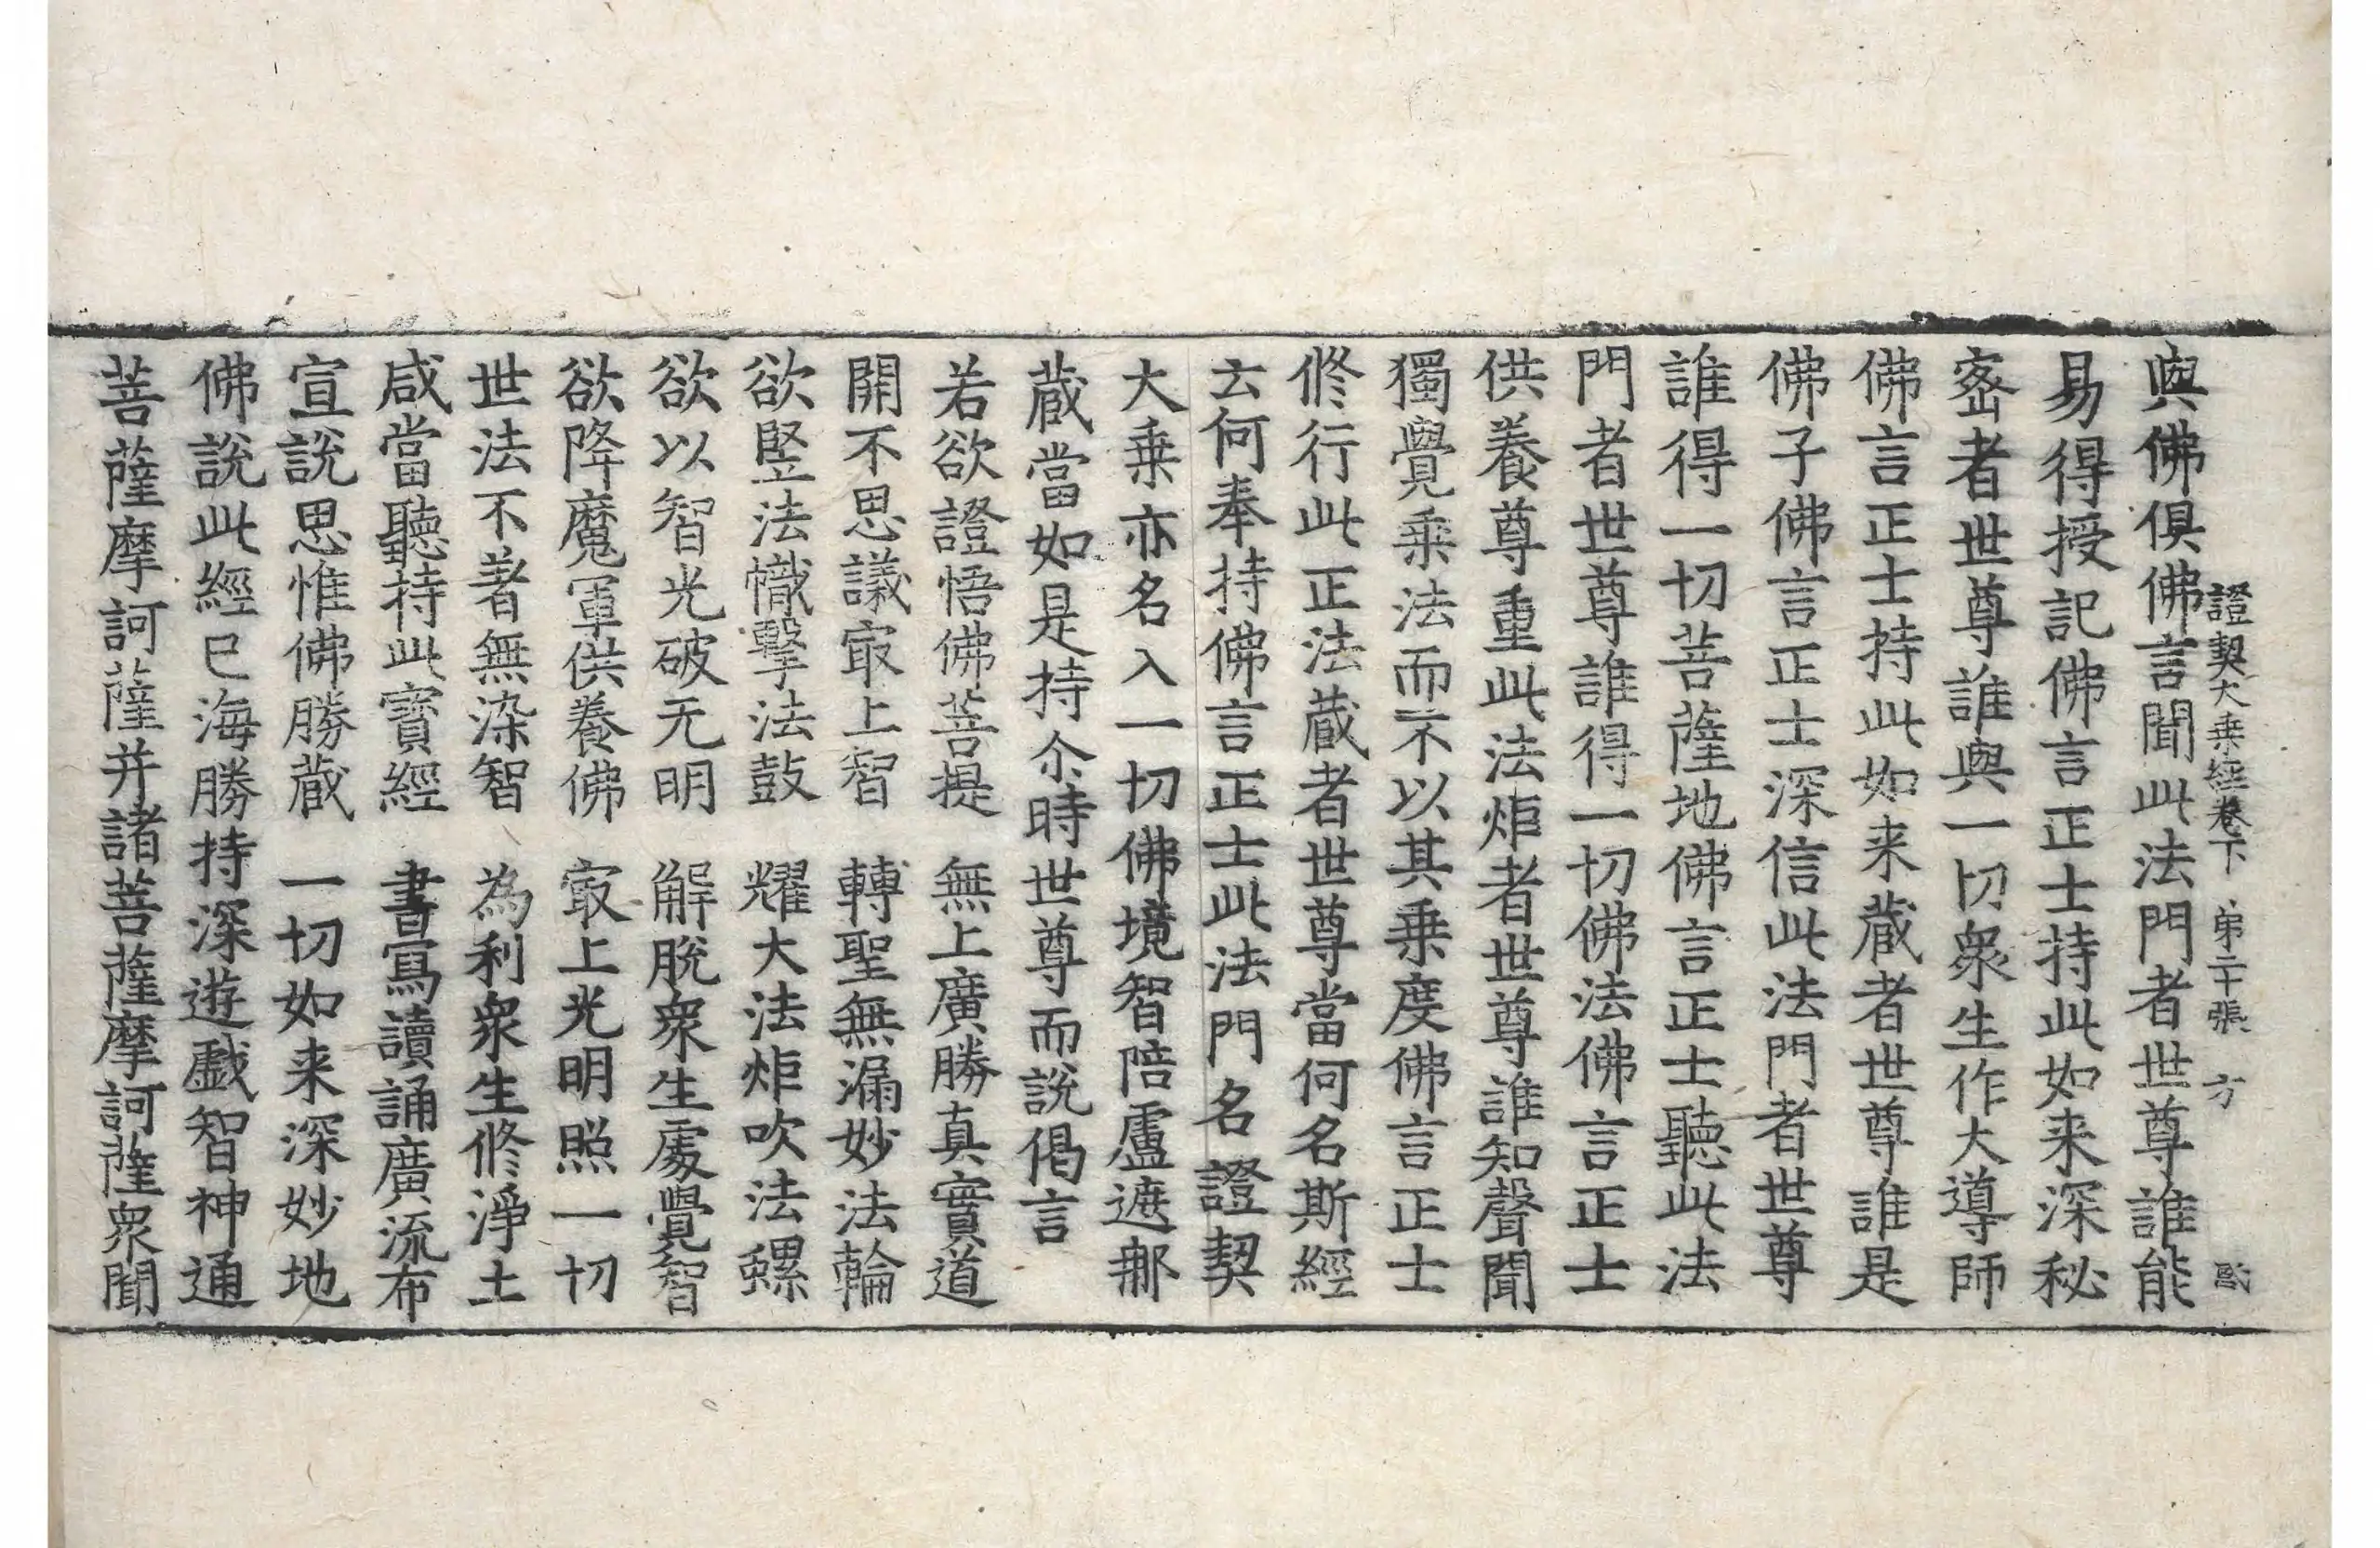 證契大乗經卷下 弟二十張 方
與佛俱佛言聞此法門者世尊誰能
易得授記佛言正士持此如来深秘
宻者世尊誰與一切衆生作大導師
佛言正士持此如来蔵者世尊誰是
佛子佛言正士深信此法門者世尊
誰得一切菩薩地佛言正士聽此法
門者世尊誰得一切佛法佛言正士
供養尊重此法炬者世尊誰知聲聞
獨覺乗法而不以其乗度佛言正士
修行此正法蔵者世尊當何名斯經
云何奉持佛言正士此法門名證契
大乗亦名入一切佛境智陪盧遮那
蔵當如是持尒時世尊而說偈言
若欲證悟佛菩提 無上廣勝真實道
開不思議㝡上智 轉聖無漏妙法輪
欲竪法幟擊法鼓 耀大法炬吹法螺
欲以智光破无明 解脫衆生處覺智
欲降魔軍供養佛 㝡上光明照一切
世法不著無染智 為利衆生修淨土
咸當聽持此寳經 書寫讀誦廣流布
宣說思惟佛勝蔵 一切如来深妙地
佛說此經已海勝持深遊戱智神通
菩薩摩訶薩并諸菩薩摩訶薩衆聞